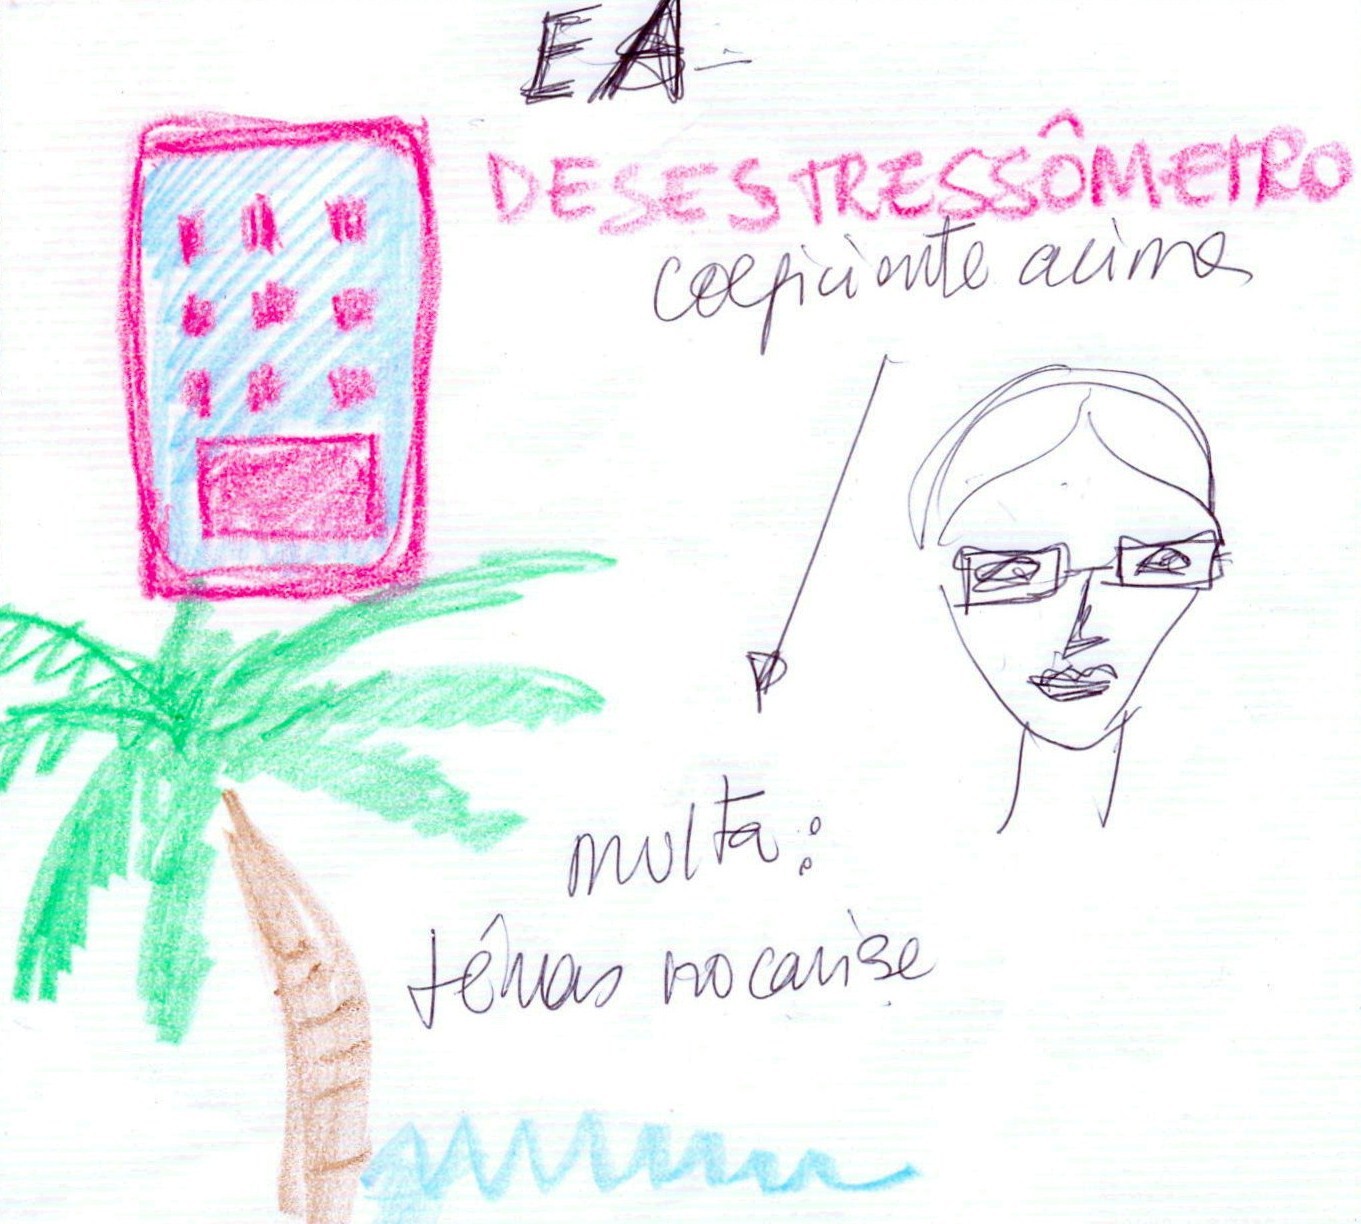 EA
DESESTRESSÔMETRO
coeficiente acima
multa:
férias no caribe